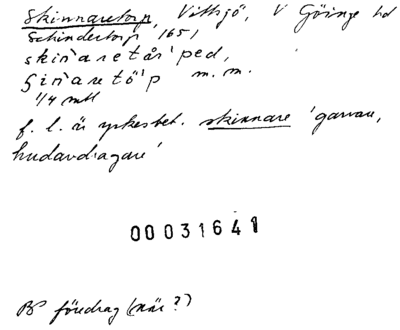 Skinnaretorp, Vittsjö, V Göinge hd
Schindertorp 1651
skin̄aretår`ped,
ʃin̄aretö`p m.m.
1/4 mtl
f. l. är yrkesbet. skinnare 'garvare,
hudavdragare'
00031641
föredrag (när?)